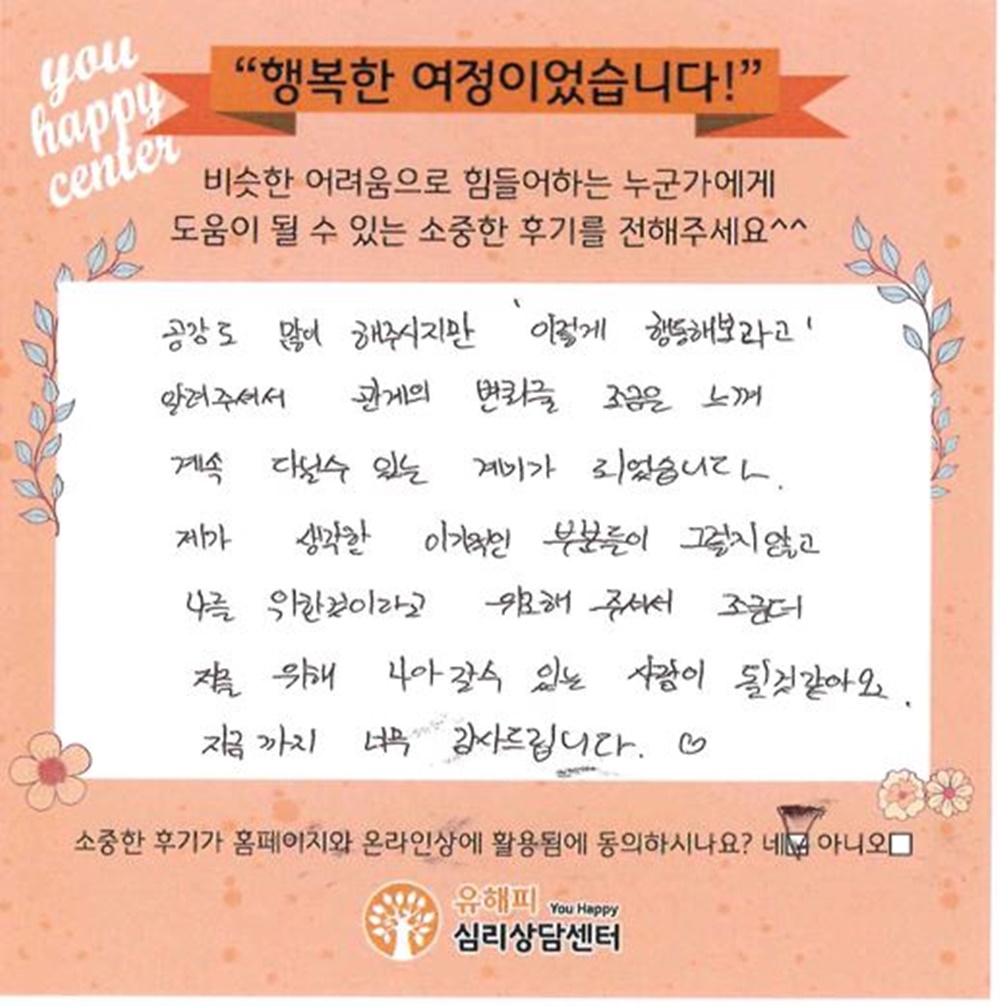 you
happy
center
“행복한 여정이었습니다!”
비슷한 어려움으로 힘들어하는 누군가에게
도움이 될 수 있는 소중한 후기를 전해주세요^^
공감도 많이 해주시지만 '이렇게 행동해보라고'
알려주셔서 관계의 변화를 조금은 느껴
계속 다닐수 있는 계기가 되었습니다.
제가 생각한 이기적인 부분들이 그렇지않고
나를 위한것이라고 위로해 주셔서 조금더
저를 위해 나아갈수 있는 사람이 될것같아요.
지금까지 너무 감사드립니다. ♡
소중한 후기가 홈페이지와 온라인상에 활용됨에 동의하시나요? 네☑ 아니오□
유해피 You Happy
심리상담센터